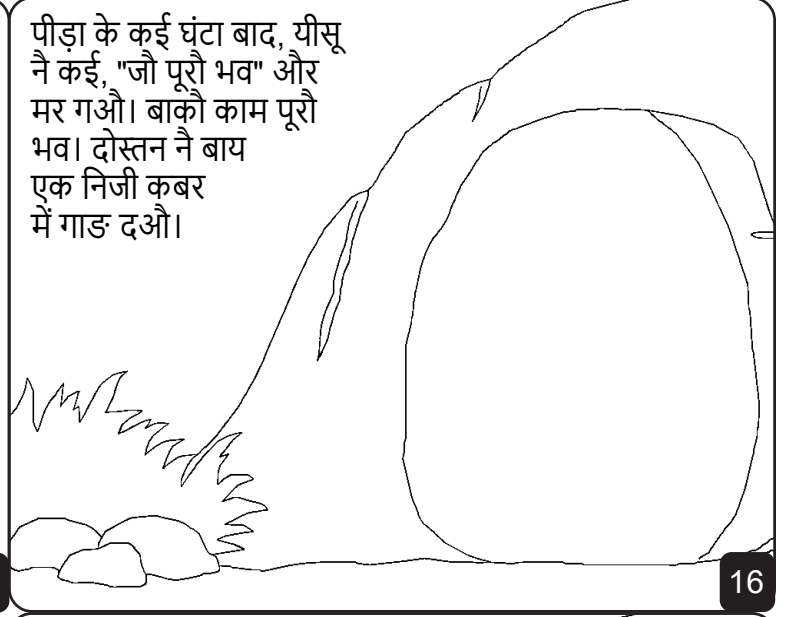 पीड़ा के कई घंटा बाद, यीसू
नै कई, "जौ पूरौ भव" और
मर गऔ। बाकौ काम पूरौ
भव। दोस्तन नै बाय
एक निजी कबर
में गाङ दऔ।
16